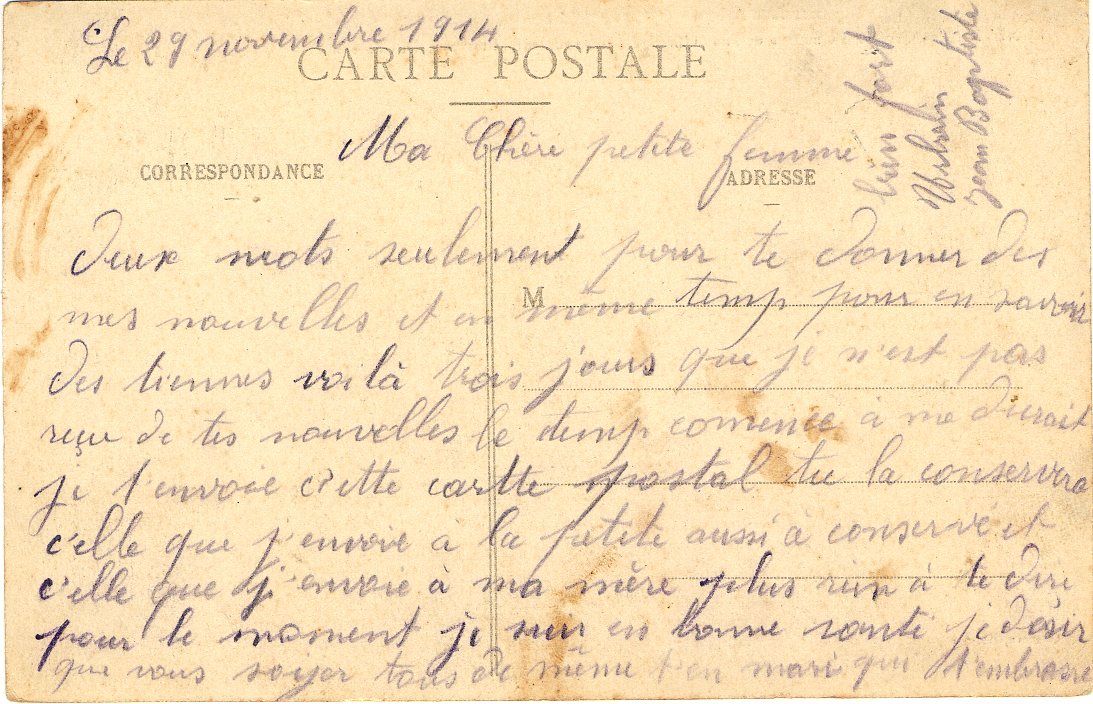 Le 29 novembre 1914
CARTE POSTALE
Ma Chère petite femme
CORRESPONDANCE
ADRESSE
deux mots seulement pour te donner des
M
mes nouvelles et en même temp pour en savoir
des tiennes voilà trois jours que je n'est pas
reçu de tes nouvelles le temp comence à me durait
je t'envoie c'ette cartte postal tu la conservera
c'elle que j'envoie a la petite aussi à conservé et
c'elle que j'envoie à ma mère plus rien à te dire
pour le moment je suis en bonne santé je désir
que vous soyer tous de même t'en mari qui t'embrasse
bien fort
Urbain
Jean Baptiste